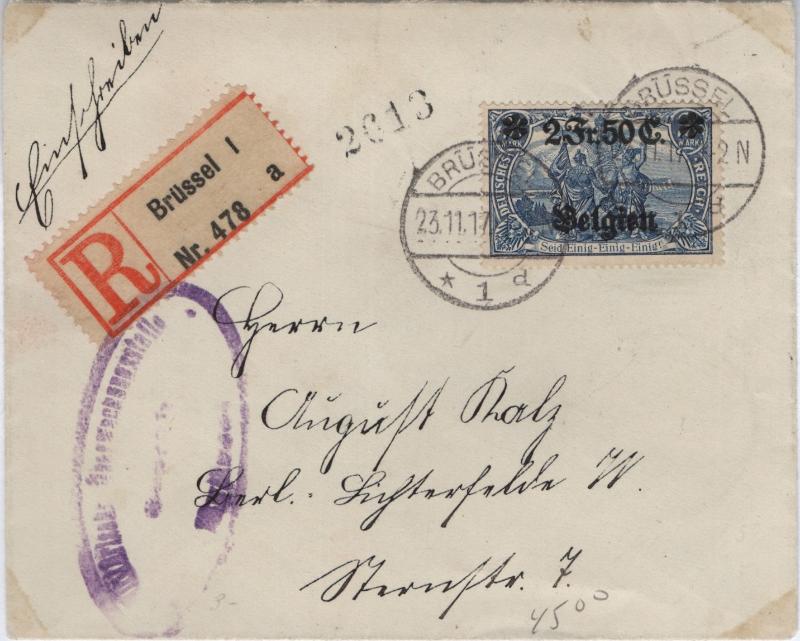 Einschreiben
2613
Brüssel 1
a
Nr. 478
R
BRÜSSEL
23.11.17
* 1 d
BRÜSSEL
2 N
d
2Fr.50C.
MARK
MARK
DEUTSCHES
REICH
Belgien
Seid Einig-Einig-Einig!
Herrn
August Kalz
Berl.- Lichterfelde W.
Sternstr. 7.
4500
3-
Überwachungsstelle